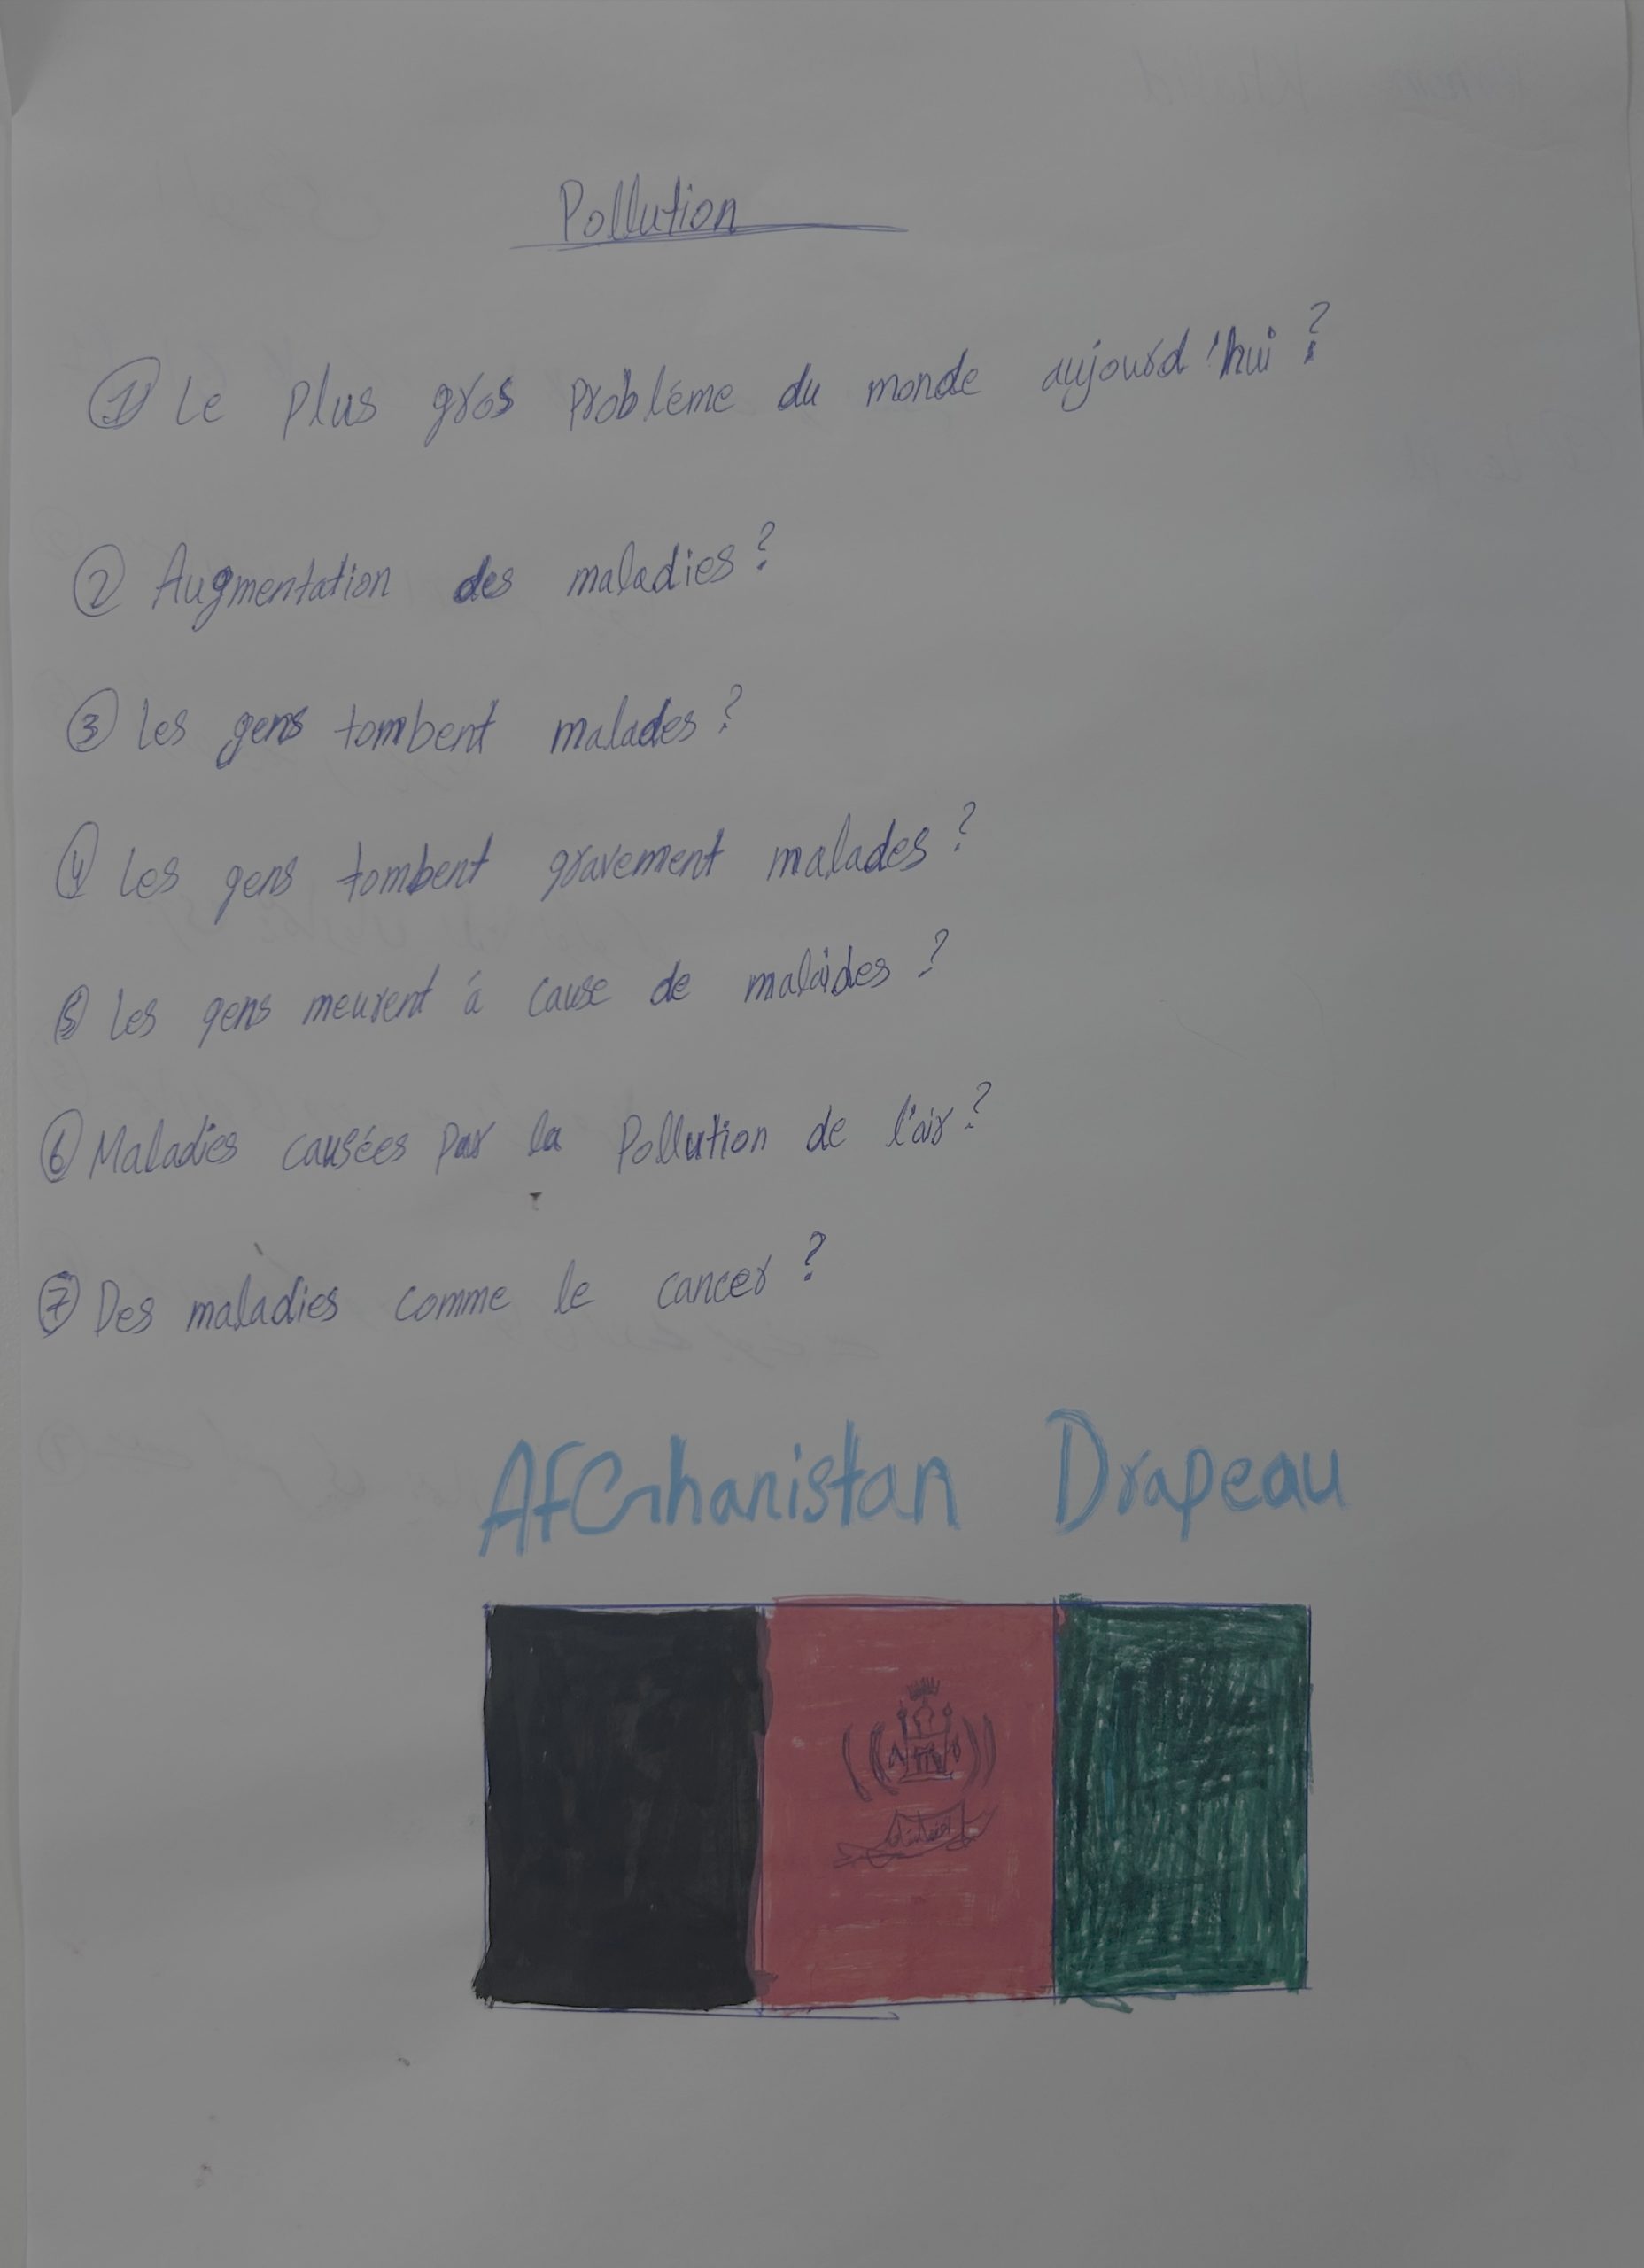 Pollution
① Le Plus gros Probléme du monde aujourd'hui ?
② Augmentation des maladies ?
③ Les gens tombent malades ?
④ Les gens tombent gravement malades ?
⑤ Les gens meurent á cause de malaides ?
⑥ Maladies causées par la Pollution de l'air ?
⑦ Des maladies comme le cancer ?
AfGhanistan Drapeau